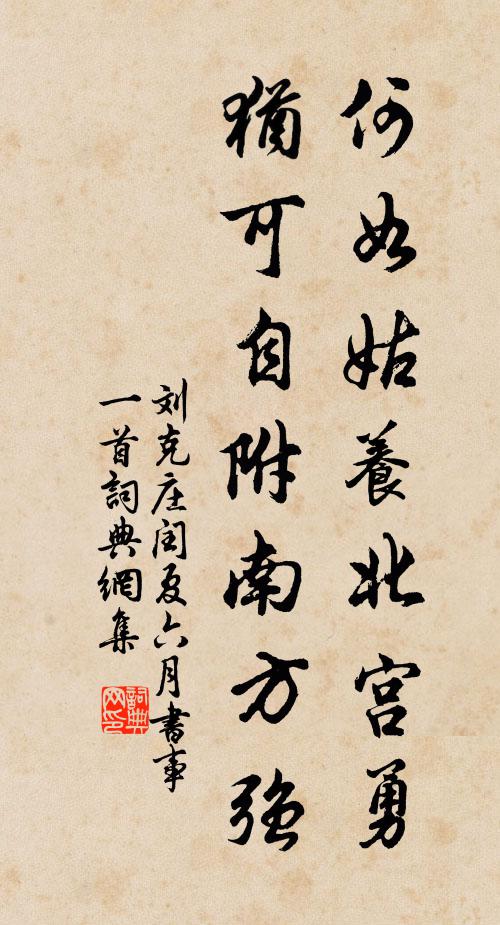 何如姑養北宫勇
猶可自附南方强
刘克庄闰夏六月書事
一首詞典網集
詞典网印